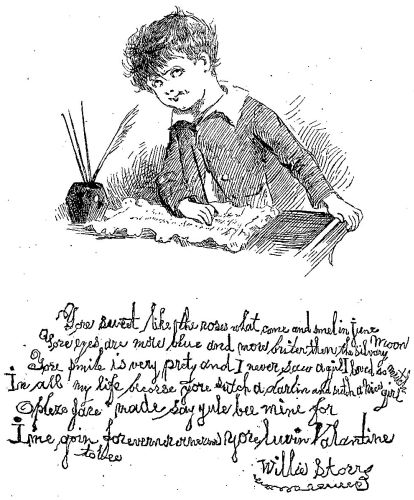 Yore sweet like the roses what come and smel in june
Yore eyes are more blue and more briter then the silvery Moon
Yore smile is very prety and I never seen a girl I loved so
In all my life becorse yore sutch a darlin and sutch a nice girl
O pleze fare made say yule bee mine for
Ime goin forevernevernever yore luvin Valantine
to bee
Willie Storrs